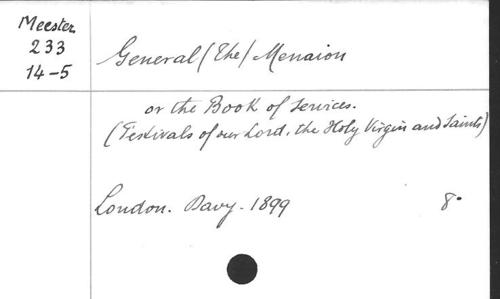 Meester
233
14-5
General (The) Menaion
or the Book of Services.
(Festivals of our Lord, the Holy Virgin and Saints)
London. Davy - 1899 8°